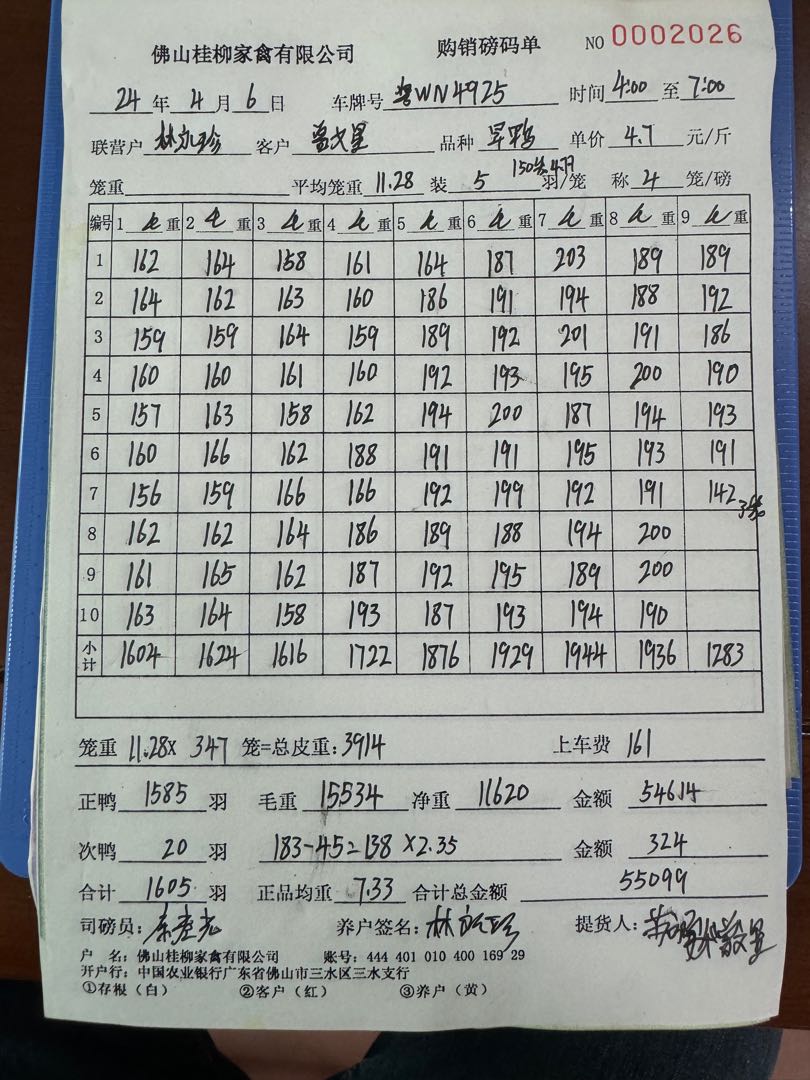 佛山桂柳家禽有限公司 购销磅码单 NO 0002026
24年4月6日 车牌号 粤WN4925 时间4:00至7:00
联营户 林永珍 客户 品种 旱鸭 单价 4.7 元/斤
笼重 平均笼重 11.28 装 5 羽/笼 称 4 笼/磅
编号 1 毛 重 2 毛 重 3 毛 重 4 毛 重 5 毛 重 6 毛 重 7 毛 重 8 毛 重 9 毛 重
1 162 164 158 161 164 187 203 189 189
2 164 162 163 160 186 191 194 188 192
3 159 159 164 159 189 192 201 191 186
4 160 160 161 160 192 193 195 200 190
5 157 163 158 162 194 200 187 194 193
6 160 166 162 188 191 191 195 193 191
7 156 159 166 166 192 199 192 191 142 3笼
8 162 162 164 186 189 188 194 200
9 161 165 162 187 192 195 189 200
10 163 164 158 193 187 193 194 190
小计 1604 1624 1616 1722 1876 1929 1944 1936 1283
笼重 11.28× 347 笼=总皮重:3914 上车费 161
正鸭 1585 羽 毛重 15534 净重 11620 金额 54614
次鸭 20 羽 183-45=138 ×2.35 金额 324
合计 1605 羽 正品均重 7.33 合计总金额 55099
司磅员: 养户签名: 提货人:
户 名:佛山桂柳家禽有限公司 账号:444 401 010 400 169 29
开户行:中国农业银行广东省佛山市三水区三水支行
①存根(白) ②客户(红) ③养户(黄)